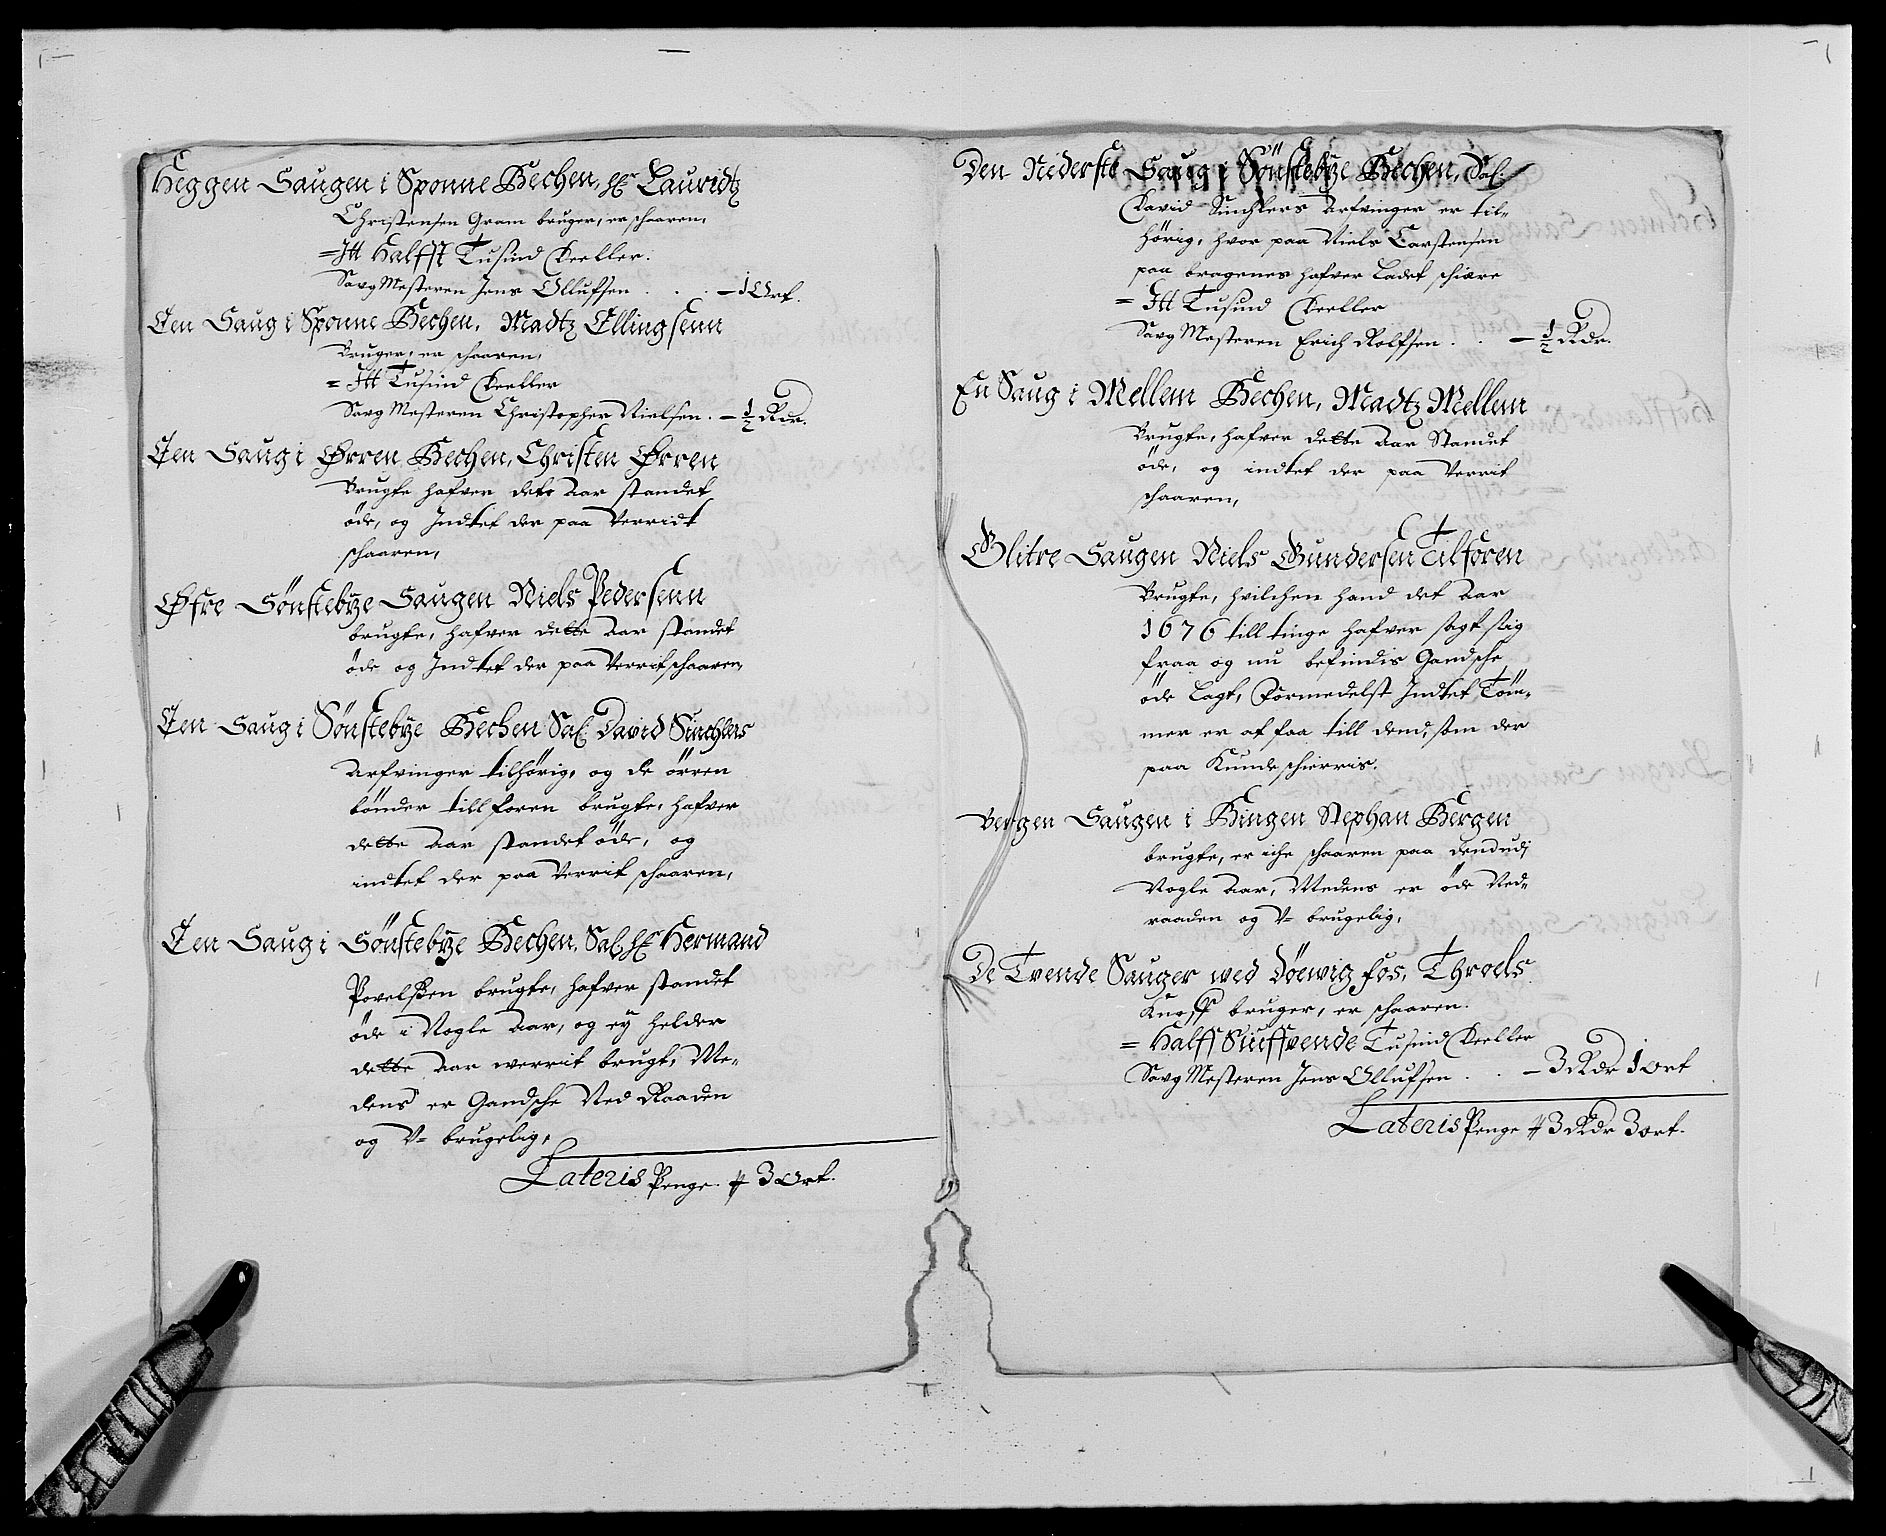 Heggen Saugen i Sponne Bechen, Hr Lauridtz
Christensen Gram bruger, er schaaren,
= Itt Halfft Tusind Deeller.
Saug Mesteren Jens Ollufsen . . . — 1 Ort.
Een Saug i Sponne Bechen, Madtz Ellingsenn
Bruger, er schaaren,
= Itt Tusind Deeller
Saug Mesteren Christopher Nielsen. — ½ Rdr.
Een Saug i Ørren Bechen, Christen Ørren
Brugte hafver dete Aar standet
öde, og Indtet der paa Verridt
schaaren,
Øfre Sönstebye Saugen Niels Pedersenn
brugte, hafver dette Aar standet
öde og Indtet der paa Verrit schaaren,
Een Saug i Sönstebye Bechen Sal. David Sinchlers
Arfvinger tilhörig, og de örren
bönder till foren brugte, hafver
dette Aar standet öde, og
indtet der paa Verrit schaaren,
Een Saug i Sönstebye Bechen, Sal. Hr Hermand
Povelßen brugte, hafver standet
öde i Nogle Aar, og ey helder
dette Aar werrit brugt, Me-
dens er Gandsche Ned Raaden
og V= brugelig,
Lateris Penge 3 Ort.
Den Nederste Saug i Sönstebye Bechen, Sal.
David Sinchlers Arfvinger er til-
hörig, hvor paa Niels Carstensen
paa bragenes hafver Ladet schiære
= Itt Tusind Deeller
Saug Mesteren Erich Rolfsen . . — ½ Rdr.
En Saug i Mellem Bechen, Madtz Mellem
Brugte, hafver dette Aar Standet
öde, og indtet der paa Verrit
schaaren,
Glitre Saugen Niels Gundersen Tilforen
Brugte, hvilchen hand det Aar
1676 till tinge hafver sagt sig
fraa og nu befindis Gandsche
öde Lagt, Formedelst Indtet Töm-
mer er af faa till dend, som der
paa Kunde schierris.
Bergen Saugen i Bingen Stephan Bergen
brugte, er iche schaaren paa
Nogle Aar, Medens er öde Ned-
raaden og V= brugelig,
De Tvende Sauger wed Döewig fos, Throels
Knoff bruger, er schaaren.
= Halff Siuffvende Tusind Deeller
Saug Mesteren Jens Ollufsen . . — 3 Rdr 1 ort
Lateris Penge 3 Rdr 3 ort.